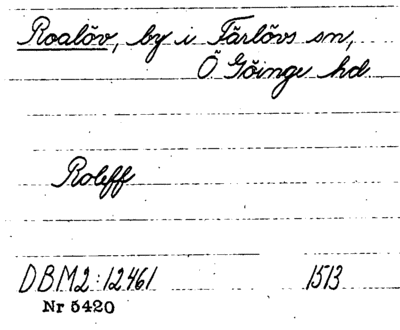 Roalöv, by i Färlövs sn,
Ö Göinge hd
Roleff
DBM2:12461 1513
Nr 5420